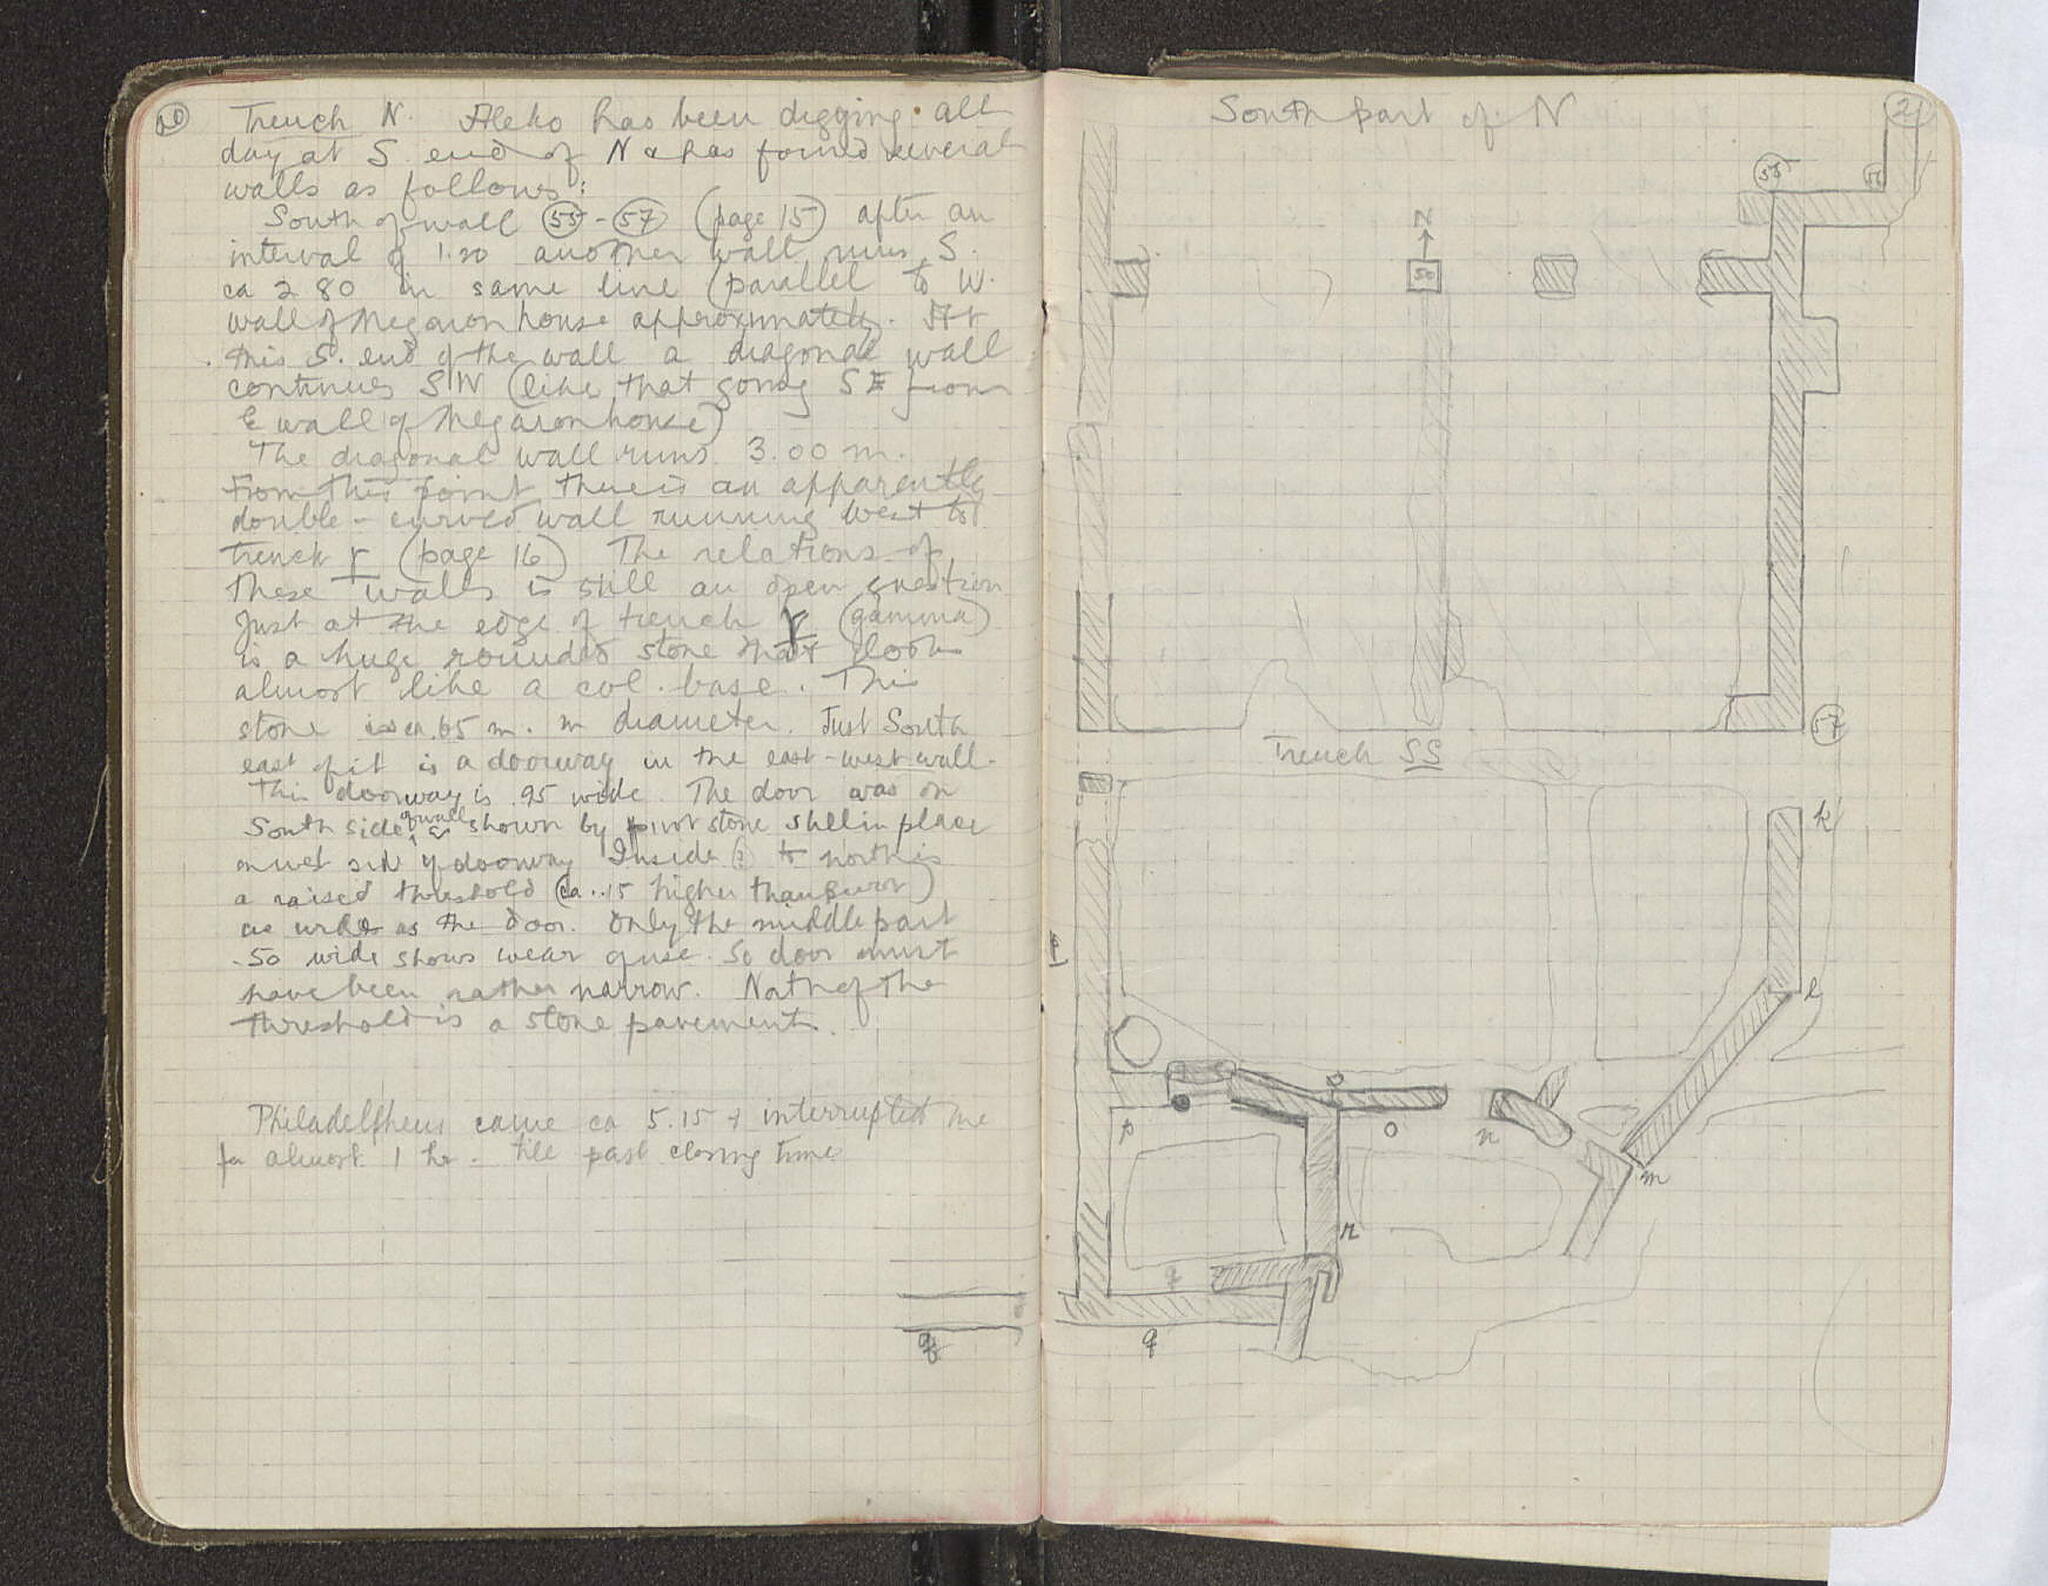 20
Trench N. Aleko has been digging all
day at S. end of N & has found several
walls as follows:
South of wall 55 - 57 (page 15) after an
interval of 1.20 another wall runs S.
ca 2 80 in same line (parallel to W.
wall of Megaron house approximately. At
this S. end of the wall a diagonal wall
continues SW (like that going SE from
E wall of Megaron house)
The diagonal wall runs 3.00 m.
From this point there is an apparently
double-curved wall running West to
trench γ (page 16) The relations of
these walls is still an open question
Just at the edge of trench γ (gamma)
is a huge rounded stone that looks
almost like a col. base. This
stone is ca .65 m. in diameter. Just South
east of it is a doorway in the east-west wall.
This doorway is .95 wide. The door was on
South side of wall as shown by pivot stone still in place
on west side of doorway Inside (?) to north is
a raised threshold (ca. .15 higher than pivot)
as wide as the door. Only the middle part
.50 wide shows wear of use. So door must
have been rather narrow. North of the
threshold is a stone pavement.
Philadelpheus came ca 5.15 & interrupted me
for almost 1 hr. till past closing time
q
South part of N
21
55
56
N
50
57
Trench SS
k
l
p
o
n
m
r
q
q